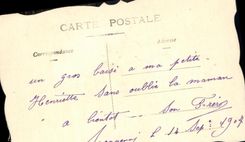 CARTE POSTALE
Correspondance Adresse
un gros baisé a ma petite
Henriette sans oublié la maman
a bientot — Son Frère
le 14 Sept. 1904